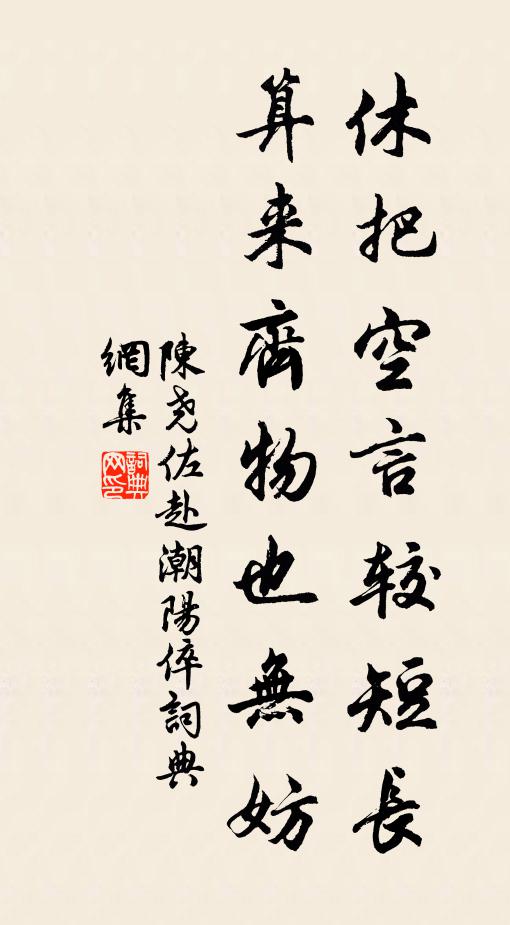 休把空言較短長
算来齊物也無妨
陳尧佐赴潮陽倅詞典
網集
詞典网印